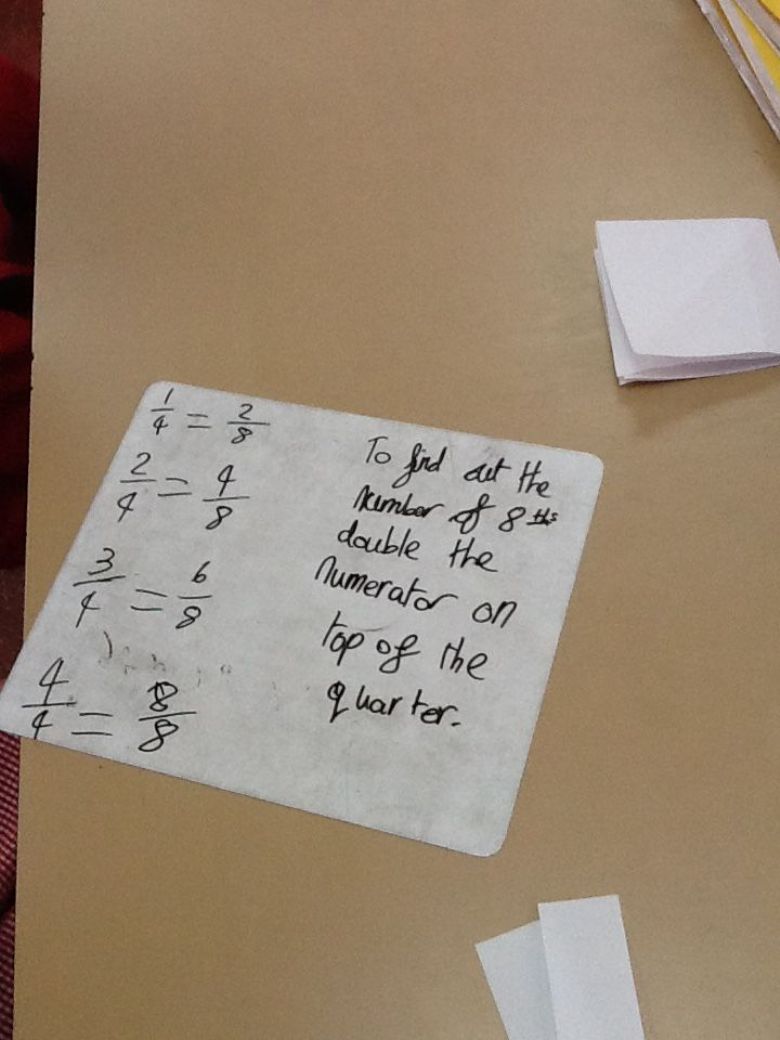 1/4 = 2/8
2/4 = 4/8
3/4 = 6/8
4/4 = 8/8
To find out the
number of 8ths
double the
numerator on
top of the
quarter.